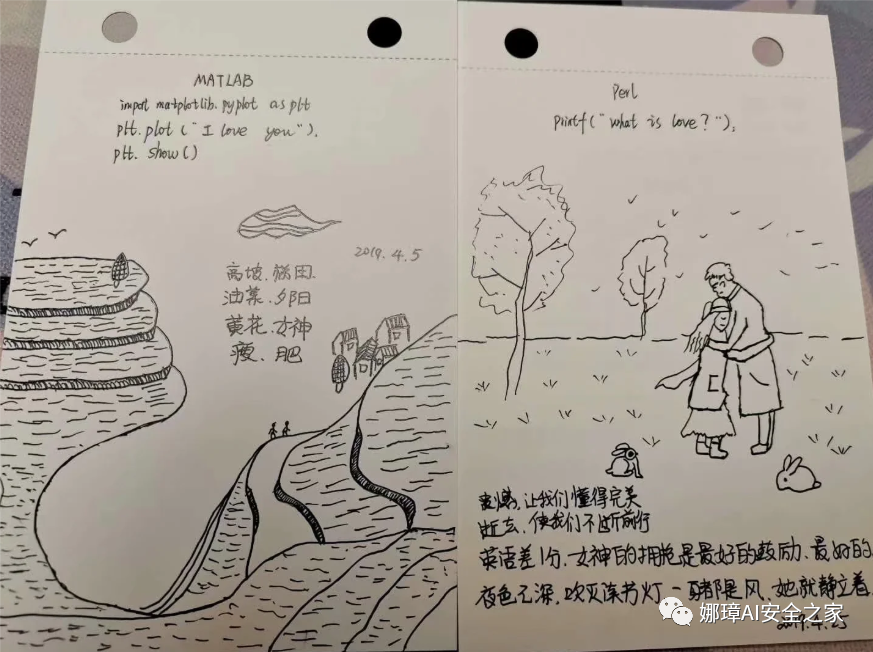 MATLAB
import matplotlib.pyplot as plt
plt.plot("I love you").
plt.show()
2019.4.5
高坡.梯田.
油菜.夕阳
黄花.女神
瘦、肥
Perl
printf("what is love?");
让我们懂得完美
逝去,使我们不断前行
英语差1分,女神的拥抱是最好的鼓励.最好的
夜色已深,吹灭读书灯,一身都是风,她就静立着.
2019.4.25
娜璋AI安全之家